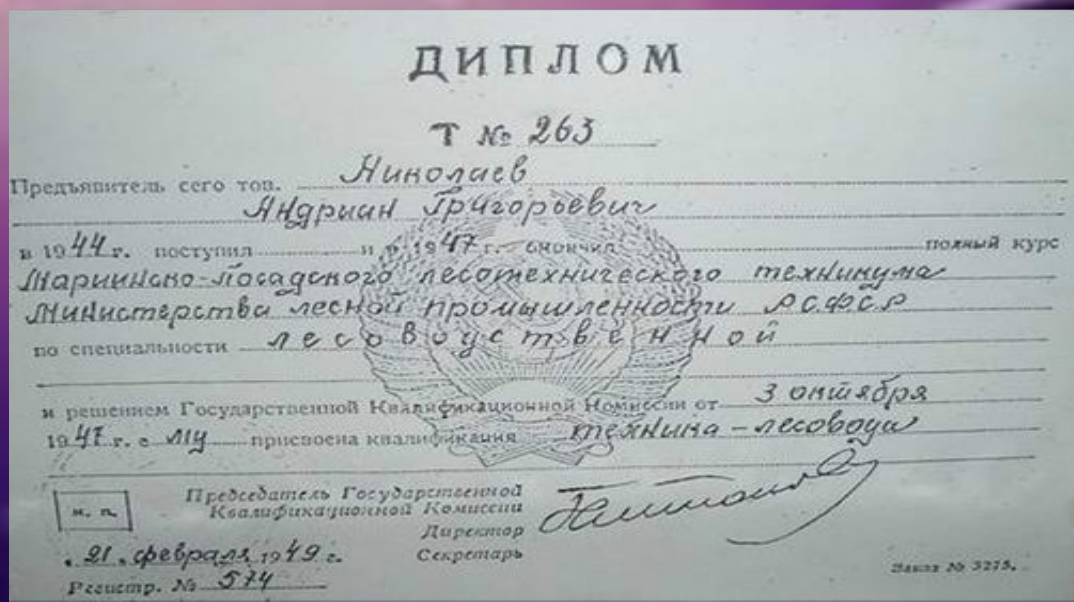 ДИПЛОМ
Т № 263
Предъявитель сего тов. Николаев
Андриан Григорьевич
в 1944 г. поступил и в 1947 г. окончил полный курс
Мариинско-Посадского лесотехнического техникума
Министерства лесной промышленности Р.С.Ф.С.Р
по специальности лесоводственной
и решением Государственной Квалификационной Комиссии от 3 октября
1947 г. е му присвоена квалификация техника-лесовода
Председатель Государственной
Квалификационной Комиссии
м. п.
Директор
Секретарь
"21" февраля 1949 г.
Регистр. № 574
Заказ № 3275.